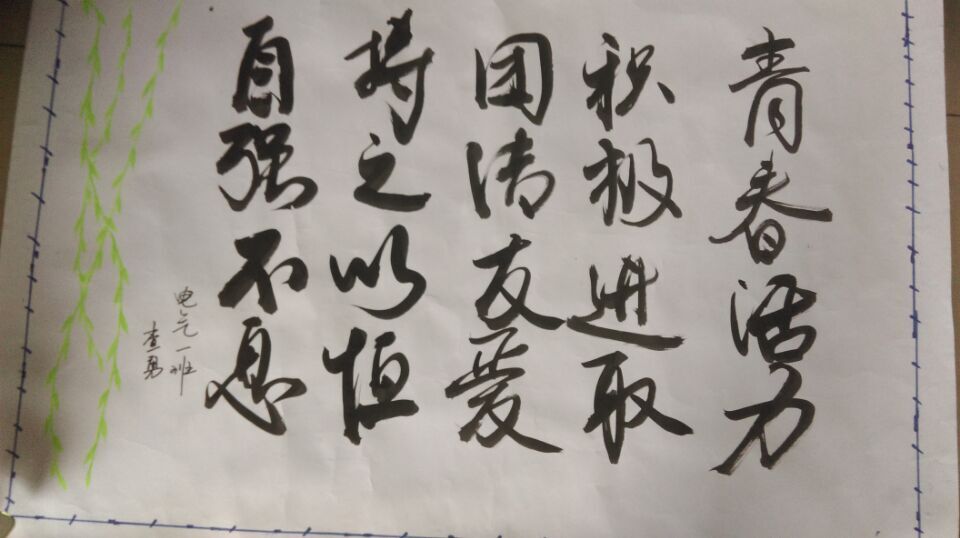 青春活力
积极进取
团清友爱
持之以恒
自强不息
电气一班
查勇